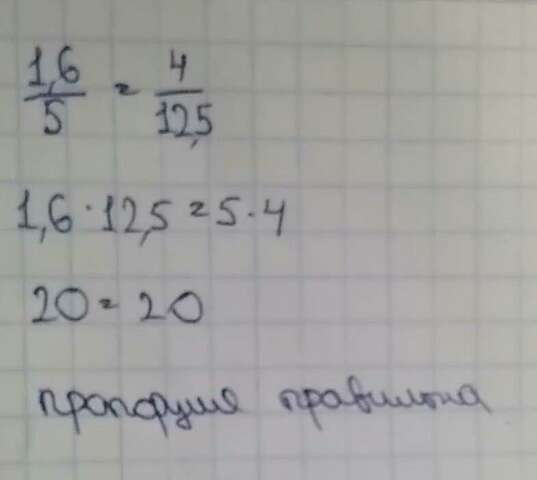 1,6/5 = 4/12,5
1,6 · 12,5 = 5 · 4
20 = 20
пропорция правильна